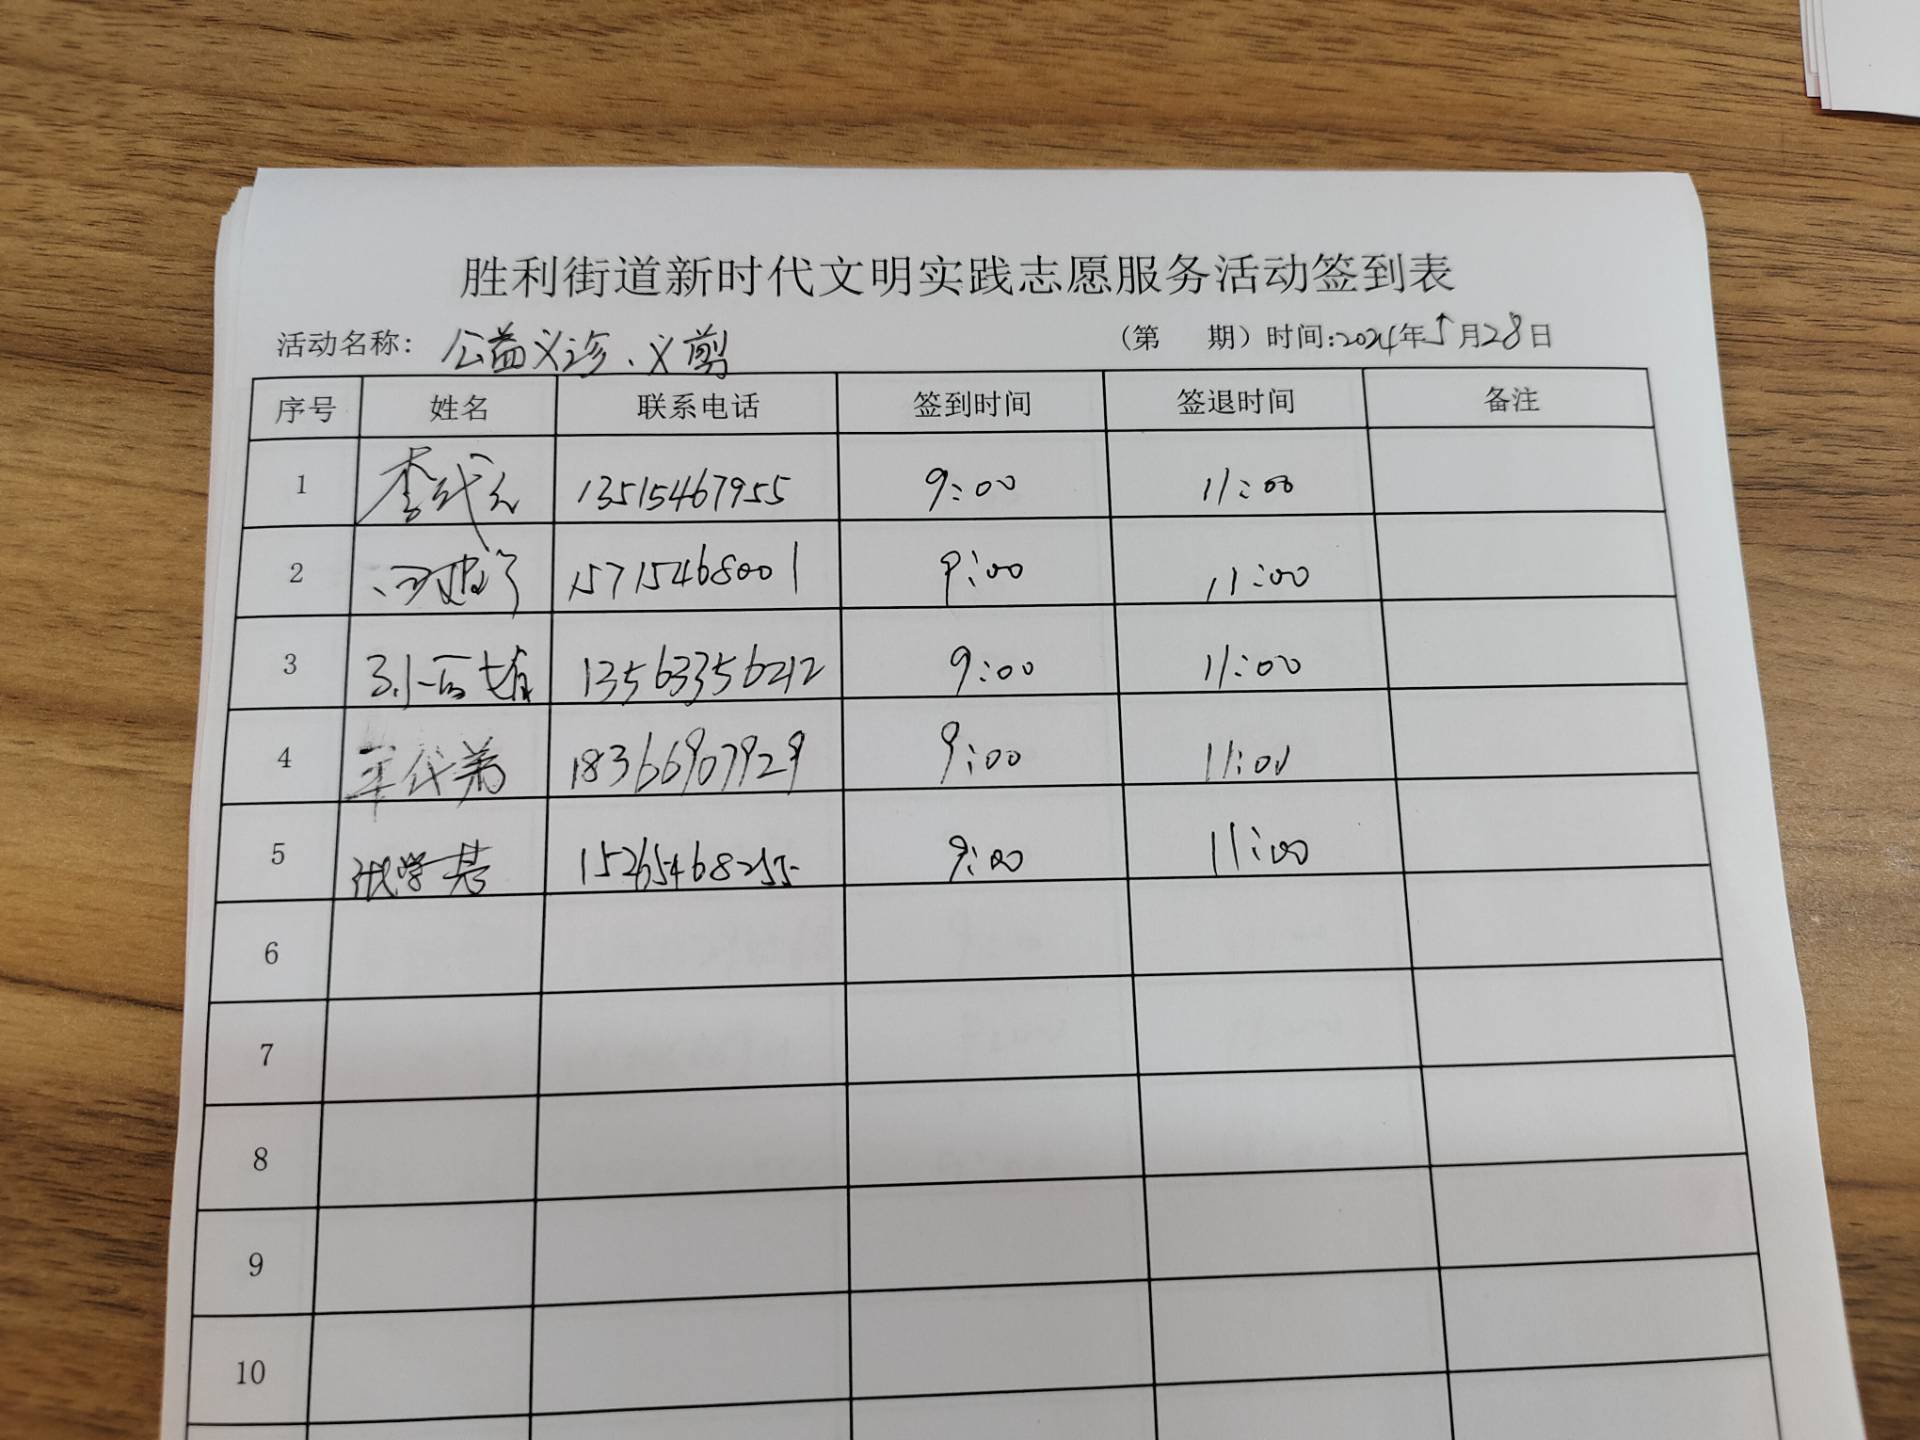 胜利街道新时代文明实践志愿服务活动签到表
活动名称：公益义诊、义剪 （第 期）时间:2024年5月28日
序号 姓名 联系电话 签到时间 签退时间 备注
1 13515467955 9:00 11:00
2 15715468001 9:00 11:00
3 13563356212 9:00 11:00
4 18366907929 9:00 11:00
5 15265468255 9:00 11:00
6
7
8
9
10